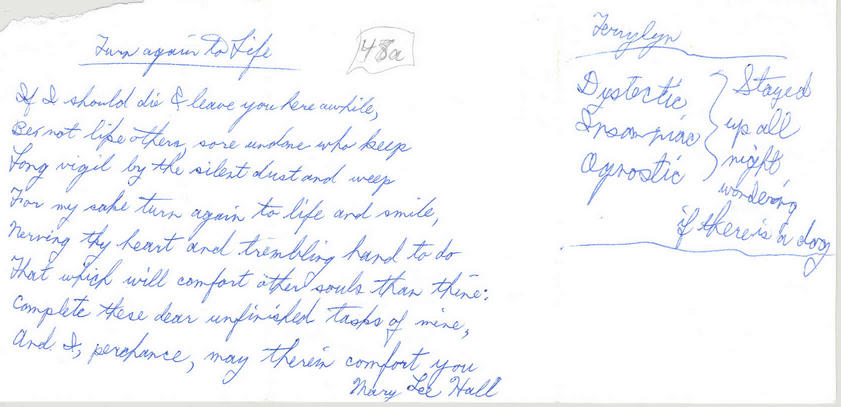 Turn again to Life
48a
If I should die & leave you here awhile,
Be not like others, sore undone who keep
Long vigil by the silent dust and weep
For my sake turn again to life and smile,
Nerving thy heart and trembling hand to do
That which will comfort other souls than thine:
Complete these dear unfinished tasks of mine,
And I, perchance, may therein comfort you
Mary Lee Hall
Terrylyn
Dyslectic
Insomniac
Agnostic
Stayed
up all
night
wondering
if there is a dog